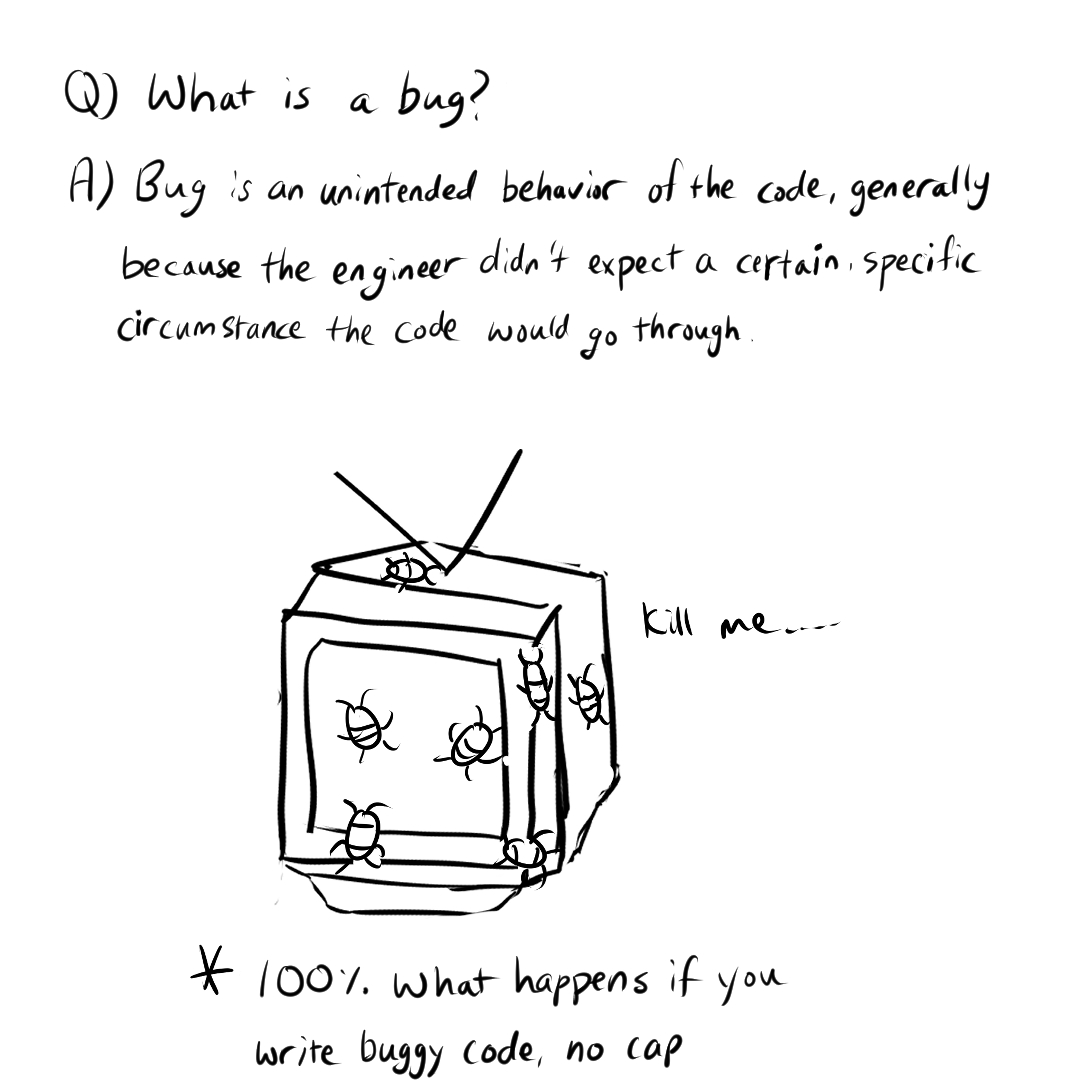 Q) What is a bug?
A) Bug is an unintended behavior of the code, generally
because the engineer didn't expect a certain, specific
circumstance the code would go through.
Kill me.....
* 100% what happens if you
write buggy code, no cap